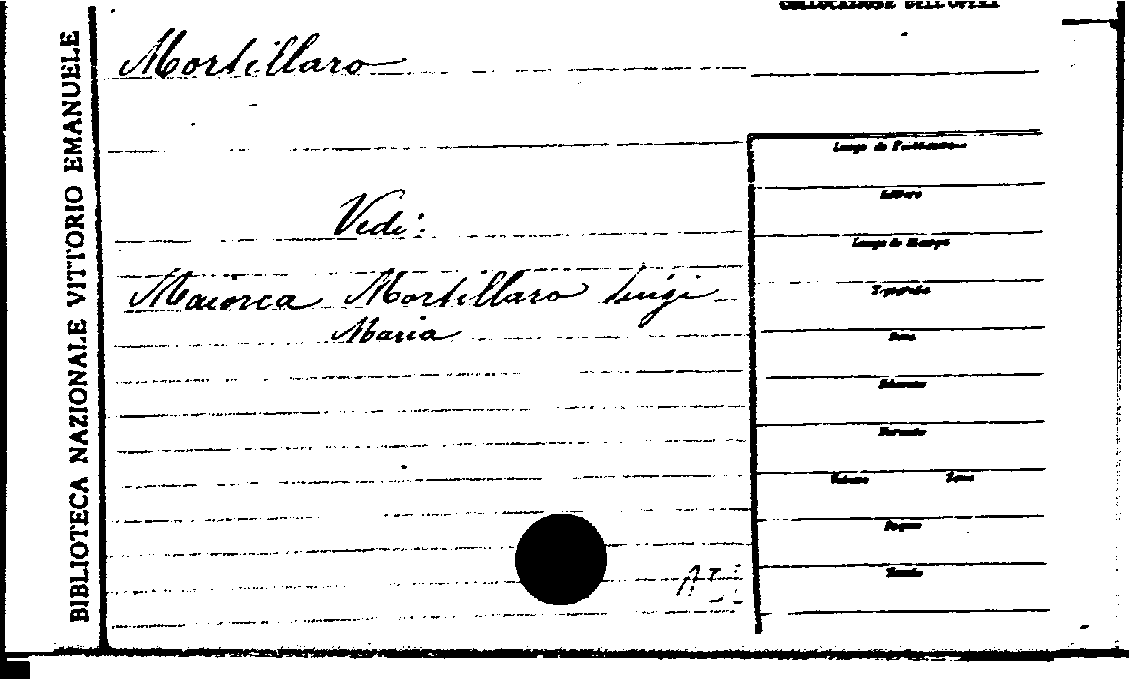 COLLOCAZIONE DELL'OPERA
BIBLIOTECA NAZIONALE VITTORIO EMANUELE
Mortillaro
Vedi:
Maiorca Mortillaro Luigi
Maria
Luogo di Pubblicazione
Editore
Luogo di Stampa
Tipografia
Data
Formato
Volume
Pagine